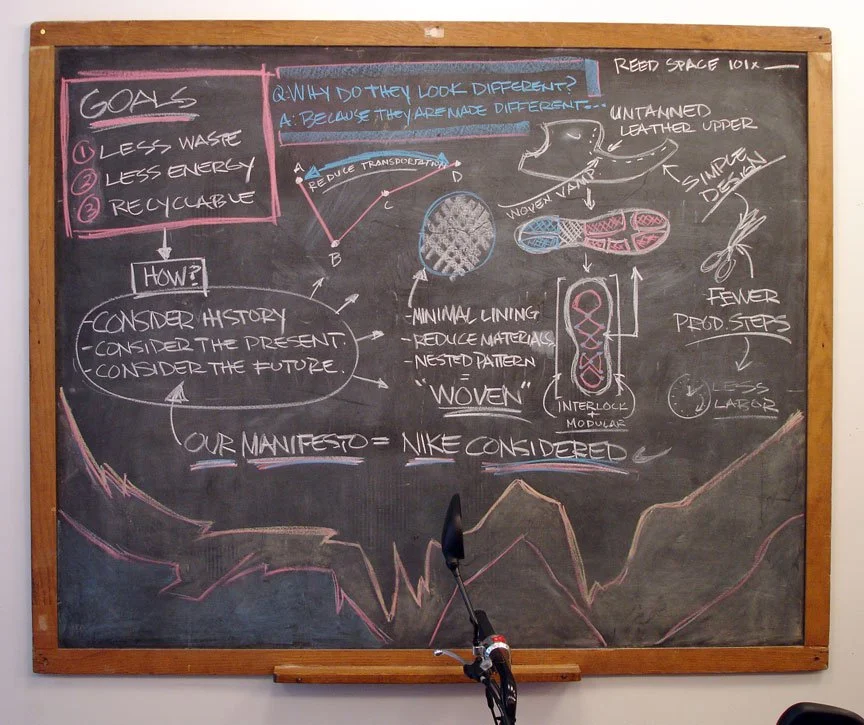 REED SPACE 101x
GOALS
1 LESS WASTE
2 LESS ENERGY
3 RECYCLABLE
Q: WHY DO THEY LOOK DIFFERENT?
A: BECAUSE THEY ARE MADE DIFFERENT...
A
REDUCE TRANSPORTATION
D
C
B
UNTANNED
LEATHER UPPER
SIMPLE
DESIGN
WOVEN VAMP
HOW?
-CONSIDER HISTORY
-CONSIDER THE PRESENT.
-CONSIDER THE FUTURE.
-MINIMAL LINING
-REDUCE MATERIALS
-NESTED PATTERN
=
"WOVEN"
INTERLOCK
+
MODULAR
FEWER
PROD. STEPS
LESS
LABOR
OUR MANIFESTO = NIKE CONSIDERED